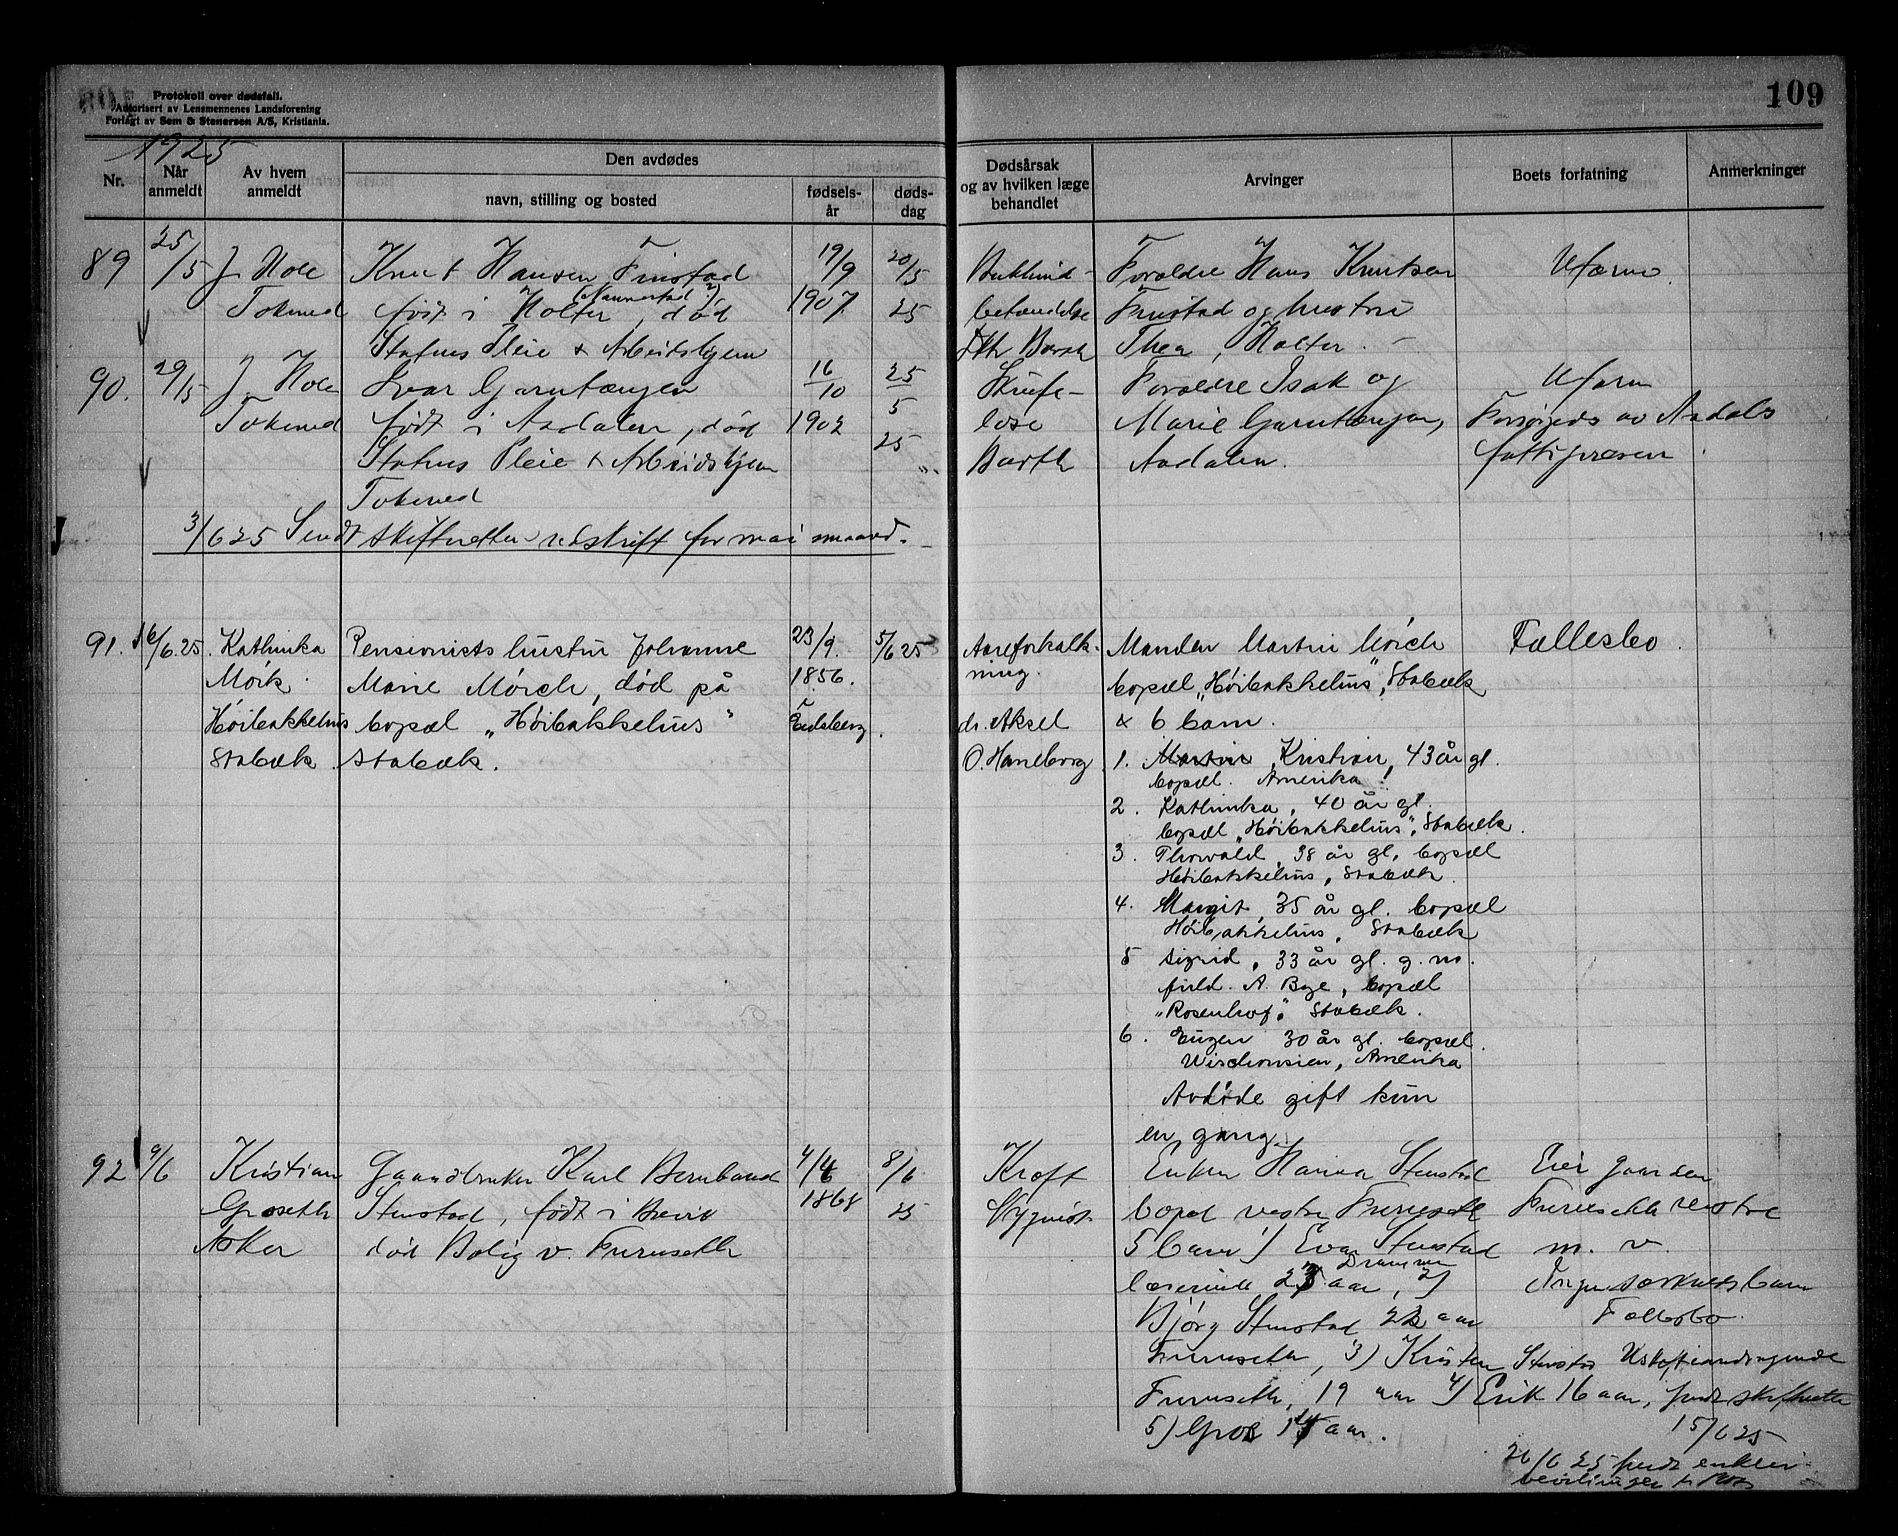 Protokoll over dødsfall.
Autorisert av Lensmennenes Landsforening
Forlagt av Sem & Stenersen A/S, Kristiania.
109
1925
Nr.
Når anmeldt
Av hvem anmeldt
Den avdødes
navn, stilling og bosted
fødsels-år
døds-dag
Dødsårsak og av hvilken læge behandlet
Arvinger
Boets forfatning
Anmerkninger
89 25/5 J. Hole Knut Hansen Finstad 19/9 20/5
Tokerud født i Holter (Nannestad?), død 1907. 25
Statens Pleie & Arbeidshjem
betændelse
Dr Barth
Forældre Hans Knutsen
Finstad og hustru
Thea, Holter. -
Uform
90. 29/5 J. Hole Ivar Garntangen 16/10 25
Tokerud født i Aadalen, død 1902 5
Statens Pleie & Arbeidshjem 25
Tokerud
Skrofe-
lose
Barth
Forældre Isak og
Marie Garntangen,
Aadalen.
Uform
Forsørgeds av Aadals
fattigvæsen
3/6 25 Sendt skifteretten utskrift for mai maaned.
91. 6/6.25. Kathinka Pensionists hustru Johanne 23/9. 5/6 25
Mörk. Marie Mörch, død på 1856.
Höibakkehus bopæl „Höibakkehus" Eidsberg.
Stabæk. Stabæk.
Aareforkalk-
ning.
dr. Aksel
O. Haneborg
Manden Martin Mörch
bopæl „Höibakkehus", Stabæk
& 6 barn.
1. Martin Kristian, 43 år gl.
bopæl. Amerika!
2. Kathinka, 40 år gl.
bopæl „Höibakkehus", Stabæk.
3. Thorvald, 38 år gl. bopæl
Höibakkehus, Stabæk.
4. Margit, 35 år gl. bopæl
Höibakkehus, Stabæk
5 Sigrid, 33 år gl. g. m.
A. Bye, bopæl
„Rosenhof", Stabæk.
6. Eugen 30 år gl. bopæl.
Wischonsien, Amerika
Avdöde gift kun
en gang.
Fælleslbo.
92 9/6 Kristian Gaardbruker Karl Bernhard 4/4 8/6
Groseth Stenstad, født i Brevik 1868 25
Asker død Bolig v. Furuseth
Kræft
Enken Hanna Stenstad
bopæl vestre Furuseth
5 barn 1) Eva Stenstad
Drammen
lærerinde, 25 aar, 2)
Bjørg Stenstad 22 aar
Furuseth, 3) Kristen Stenstad
Furuseth, 19 aar 4) Erik 16 aar,
5) Gro 14 aar.
Eier gaarden
Furuseth vestre
m. v.
Ingen særkuldsbarn
Fællesbo.
sendt skifteretten
15/6 25
26/6 25 sendt enke-
bevilling